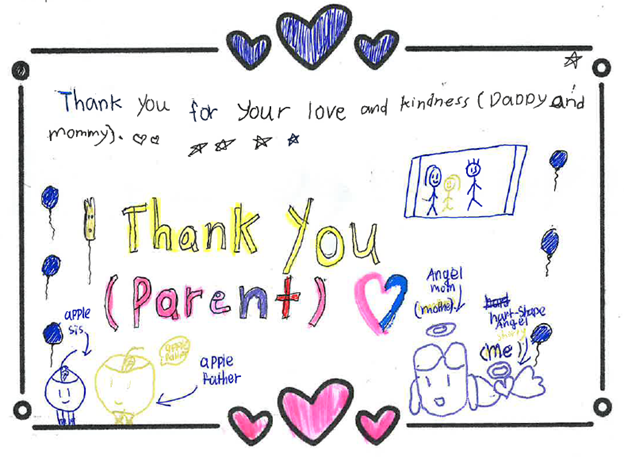 Thank you for your love and kindness (Daddy and
mommy).
Thank You
(Parent)
apple
sis
apple
father
apple
father
Angel
mom
(mome)
hart-Shape
Angel
(me)